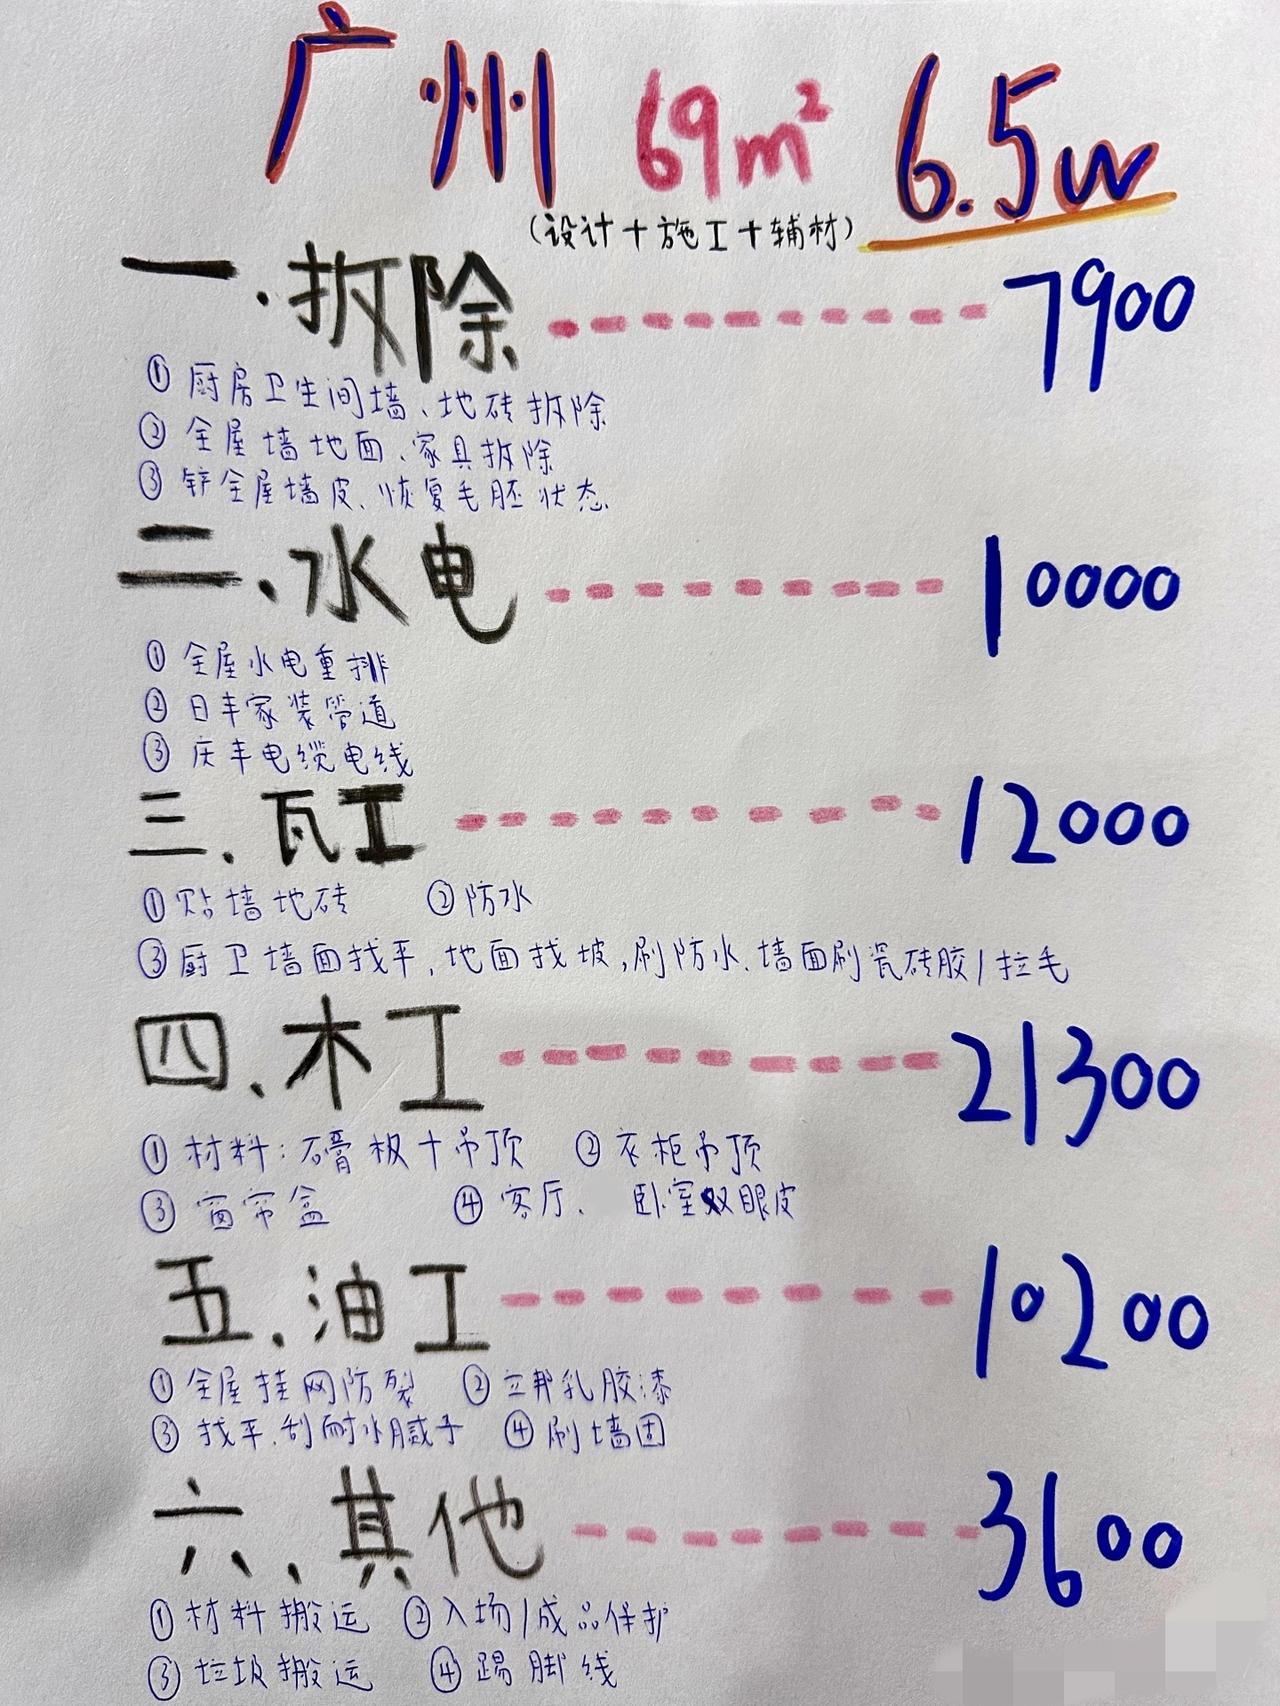 广州 69m² 6.5w
(设计+施工+辅材)
一.拆除 7900
① 厨房卫生间墙、地砖拆除
② 全屋墙地面、家具拆除
③ 铲全屋墙皮、恢复毛胚状态
二、水电 10000
① 全屋水电重排
② 日丰家装管道
③ 庆丰电缆电线
三、瓦工 12000
①贴墙地砖 ②防水
③厨卫墙面找平,地面找坡,刷防水、墙面刷瓷砖胶/拉毛
四、木工 21300
① 材料:石膏板+吊顶 ② 衣柜吊顶
③ 窗帘盒 ④ 客厅、卧室双眼皮
五、油工 10200
① 全屋挂网防裂 ② 立邦乳胶漆
③ 找平、刮耐水腻子 ④ 刷墙固
六、其他 3600
① 材料搬运 ② 入场/成品保护
③ 垃圾搬运 ④ 踢脚线